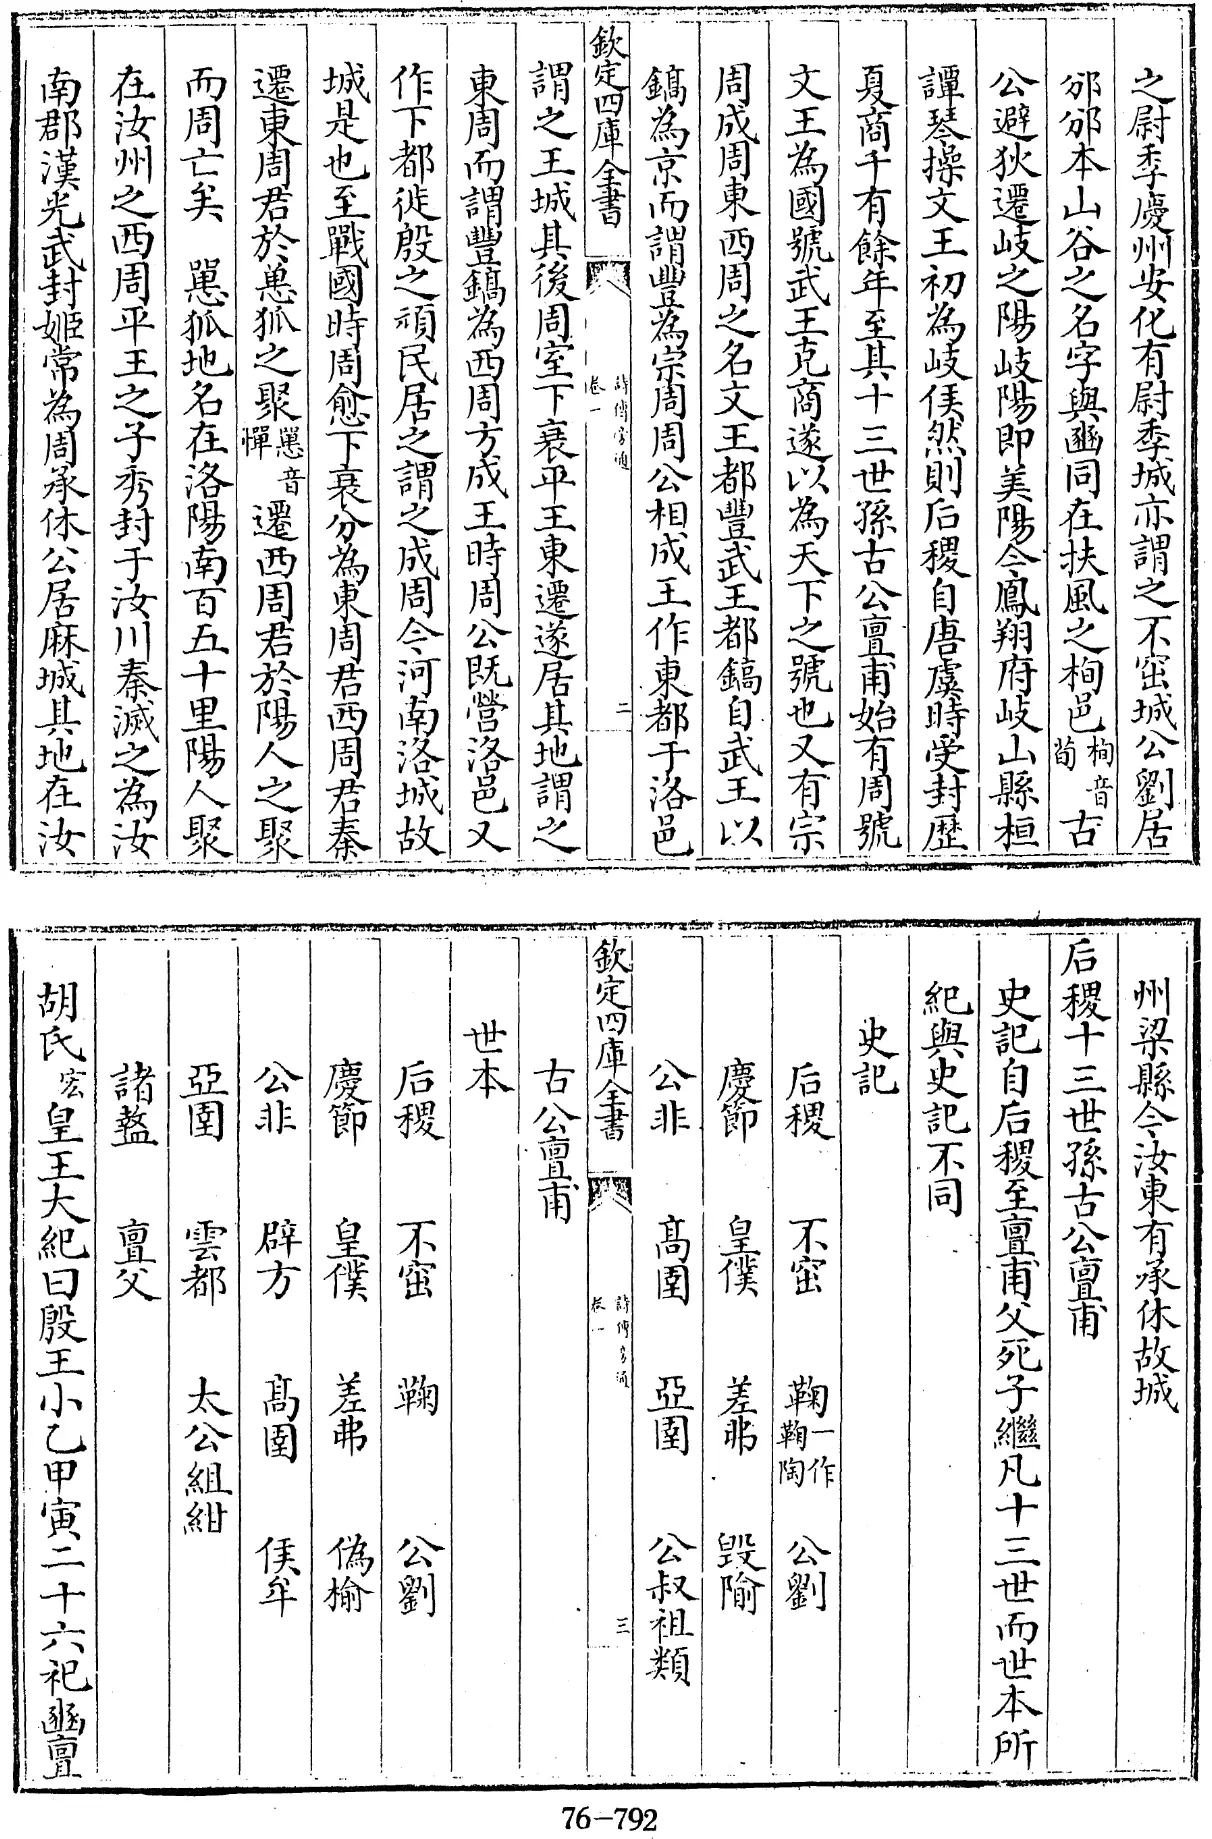 之尉李慶州安化有尉李城亦謂之不窋城公劉居
邠邠本山谷之名字與豳同在扶風之栒邑栒音荀古
公避狄遷岐之陽岐陽即美陽今鳳翔府岐山縣桓
譚琴操文王初為岐侯然則后稷自唐虞時受封歷
夏商千有餘年至其十三世孫古公亶甫始有周號
文王為國號武王克商遂以為天下之號也又有宗
周成周東西周之名文王都豐武王都鎬自武王以
鎬為京而謂豐為宗周周公相成王作東都于洛邑
欽定四庫全書
詩傳旁通
卷一
二
謂之王城其後周室下衰平王東遷遂居其地謂之
東周而謂豐鎬為西周方成王時周公既營洛邑又
作下都徙殷之頑民居之謂之成周今河南洛城故
城是也至戰國時周愈下衰分為東周君西周君秦
遷東周君於㥦狐之聚㥦音憚遷西周君於陽人之聚
而周亡矣 㥦狐地名在洛陽南百五十里陽人聚
在汝州之西周平王之子秀封于汝川秦滅之為汝
南郡漢光武封姬常為周承休公居麻城其地在汝
州梁縣今汝東有承休故城
后稷十三世孫古公亶甫
史記自后稷至亶甫父死子繼凡十三世而世本所
紀與史記不同
史記
后稷 不窋 鞠鞠一作鞠陶 公劉
慶節 皇僕 差弗 毀隃
公非 高圉 亞圉 公叔祖類
欽定四庫全書
詩傳旁通
卷一
三
古公亶甫
世本
后稷 不窋 鞠 公劉
慶節 皇僕 差弗 偽榆
公非 辟方 高圉 侯牟
亞圉 雲都 太公組紺
諸盩 亶父
胡氏宏皇王大紀曰殷王小乙甲寅二十六祀豳亶
76-792